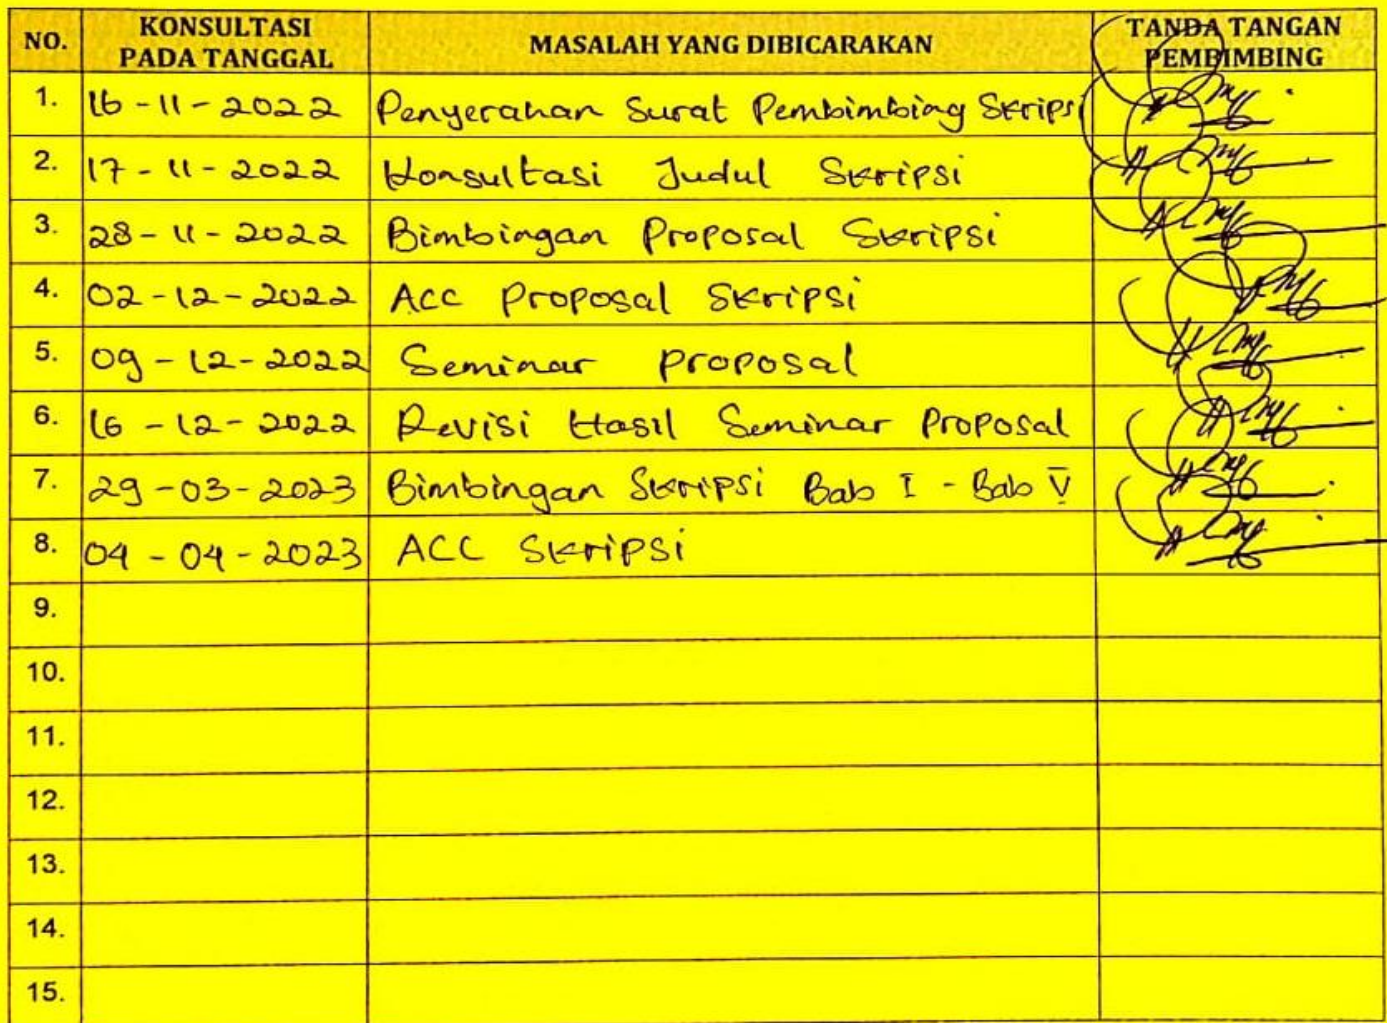 NO. KONSULTASI PADA TANGGAL MASALAH YANG DIBICARAKAN TANDA TANGAN PEMBIMBING
1. 16-11-2022 Penyerahan Surat Pembimbing Skripsi
2. 17-11-2022 Konsultasi Judul Skripsi
3. 28-11-2022 Bimbingan Proposal Skripsi
4. 02-12-2022 ACC Proposal Skripsi
5. 09-12-2022 Seminar proposal
6. 16-12-2022 Revisi Hasil Seminar Proposal
7. 29-03-2023 Bimbingan Skripsi Bab I - Bab V
8. 04-04-2023 ACC Skripsi
9.
10.
11.
12.
13.
14.
15.